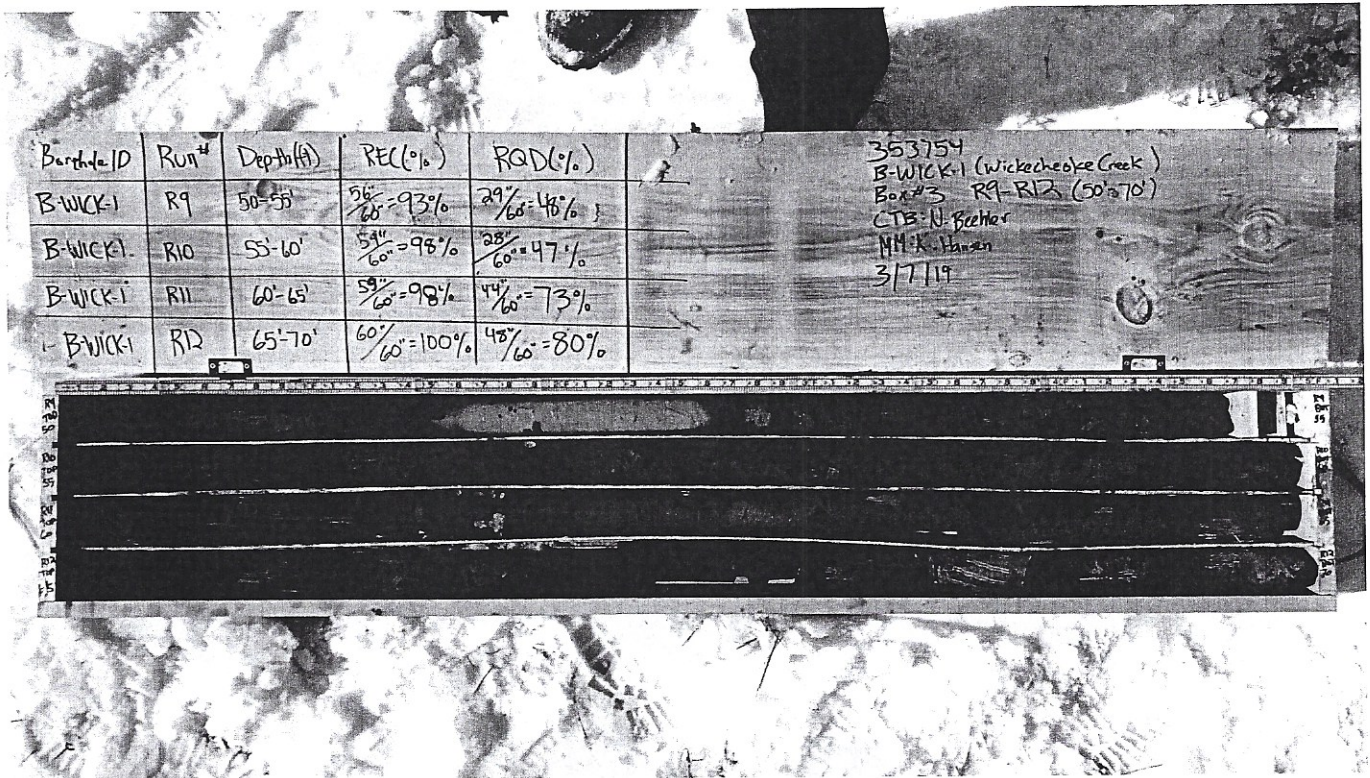 Borehole ID Run# Depth(ft) REC(%) RQD(%)
B-WICK-1 R9 50-55' 56"/60"=93% 29"/60"=48%
B-WICK-1 R10 55'-60' 59"/60"=98% 28"/60"=47%
B-WICK-1 R11 60'-65' 59"/60"=98% 44"/60"=73%
B-WICK-1 R12 65'-70' 60"/60"=100% 48"/60"=80%
353754
B-WICK-1 (Wickecheoke Creek)
Box#3 R9-R12 (50'-70')
CTB: N. Beehler
MM: K. Hansen
3/7/19